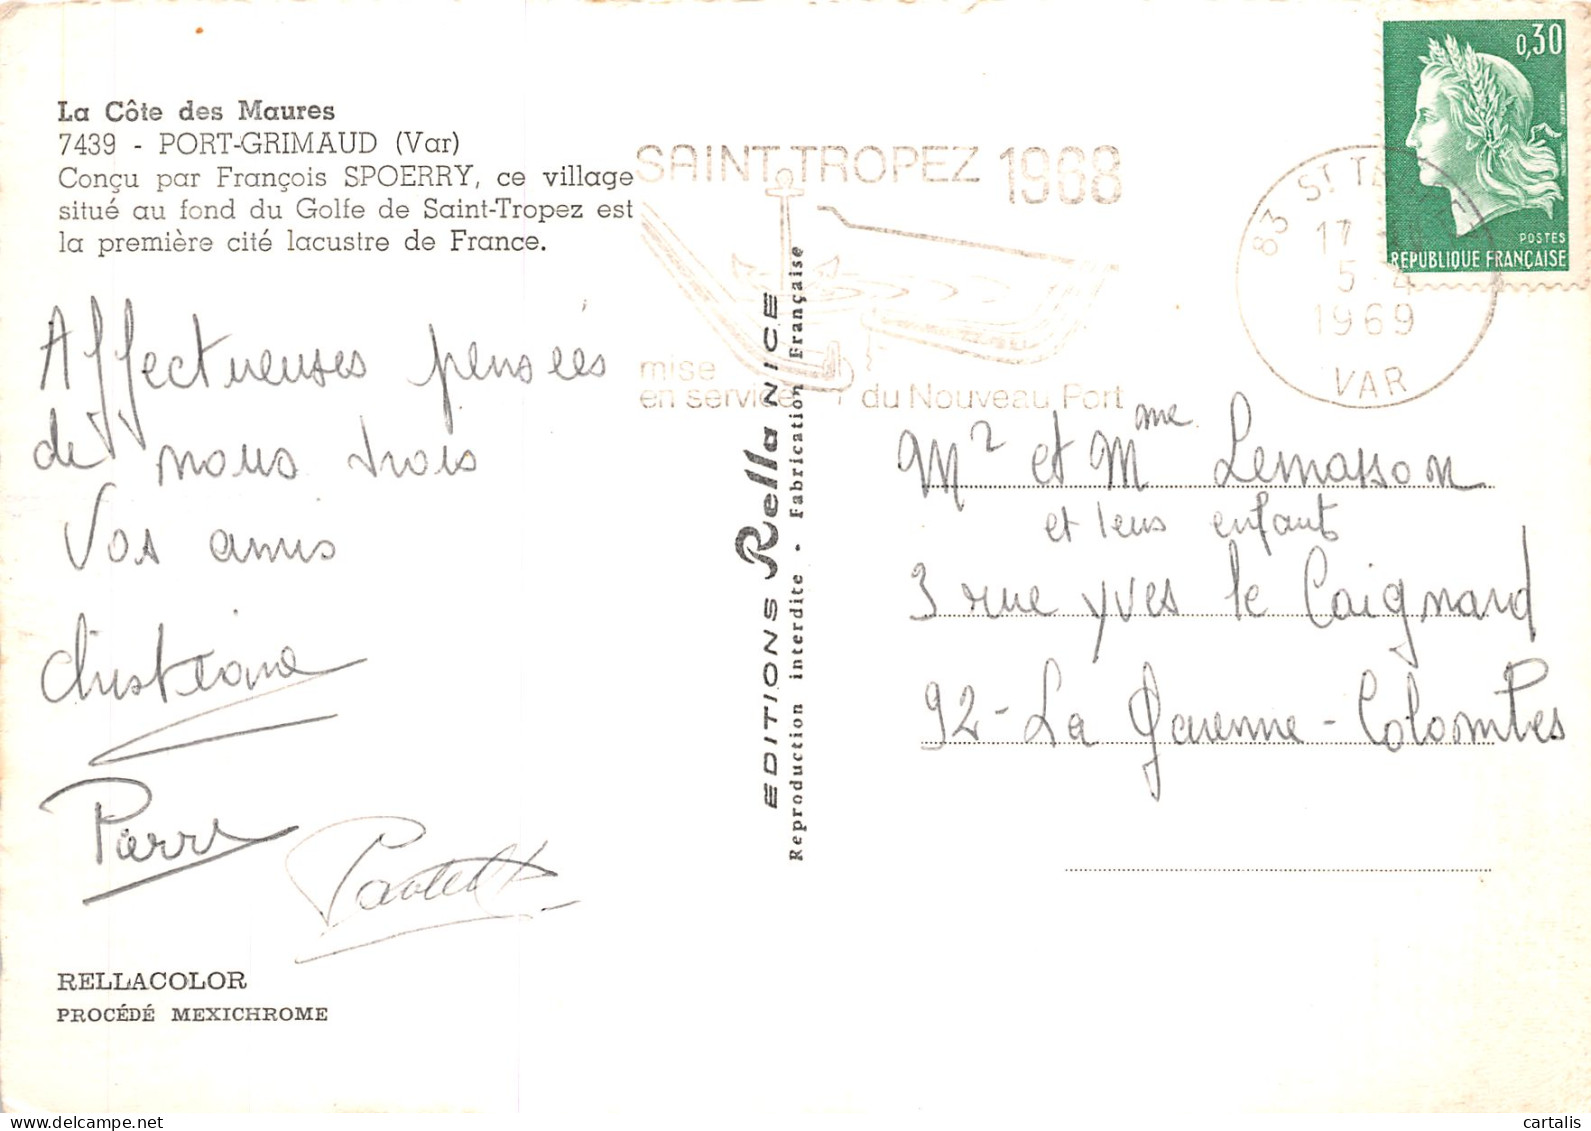 La Côte des Maures
7439 - PORT-GRIMAUD (Var)
Conçu par François SPOERRY, ce village
situé au fond du Golfe de Saint-Tropez est
la première cité lacustre de France.
Affectueuses pensées
de nous trois
Vos amis
Christiane
Pierre
RELLACOLOR
PROCÉDÉ MEXICHROME
SAINT TROPEZ 1968
mise
en service du Nouveau Port
EDITIONS Rella NICE
Reproduction interdite - Fabrication Française
83 ST
17
5 - 4
1969
VAR
0,30
POSTES
REPUBLIQUE FRANÇAISE
Mr et Mme Lemasson
et leurs enfants
3 rue Yves le Caignard
92 - La Garenne - Colombes
cartalis